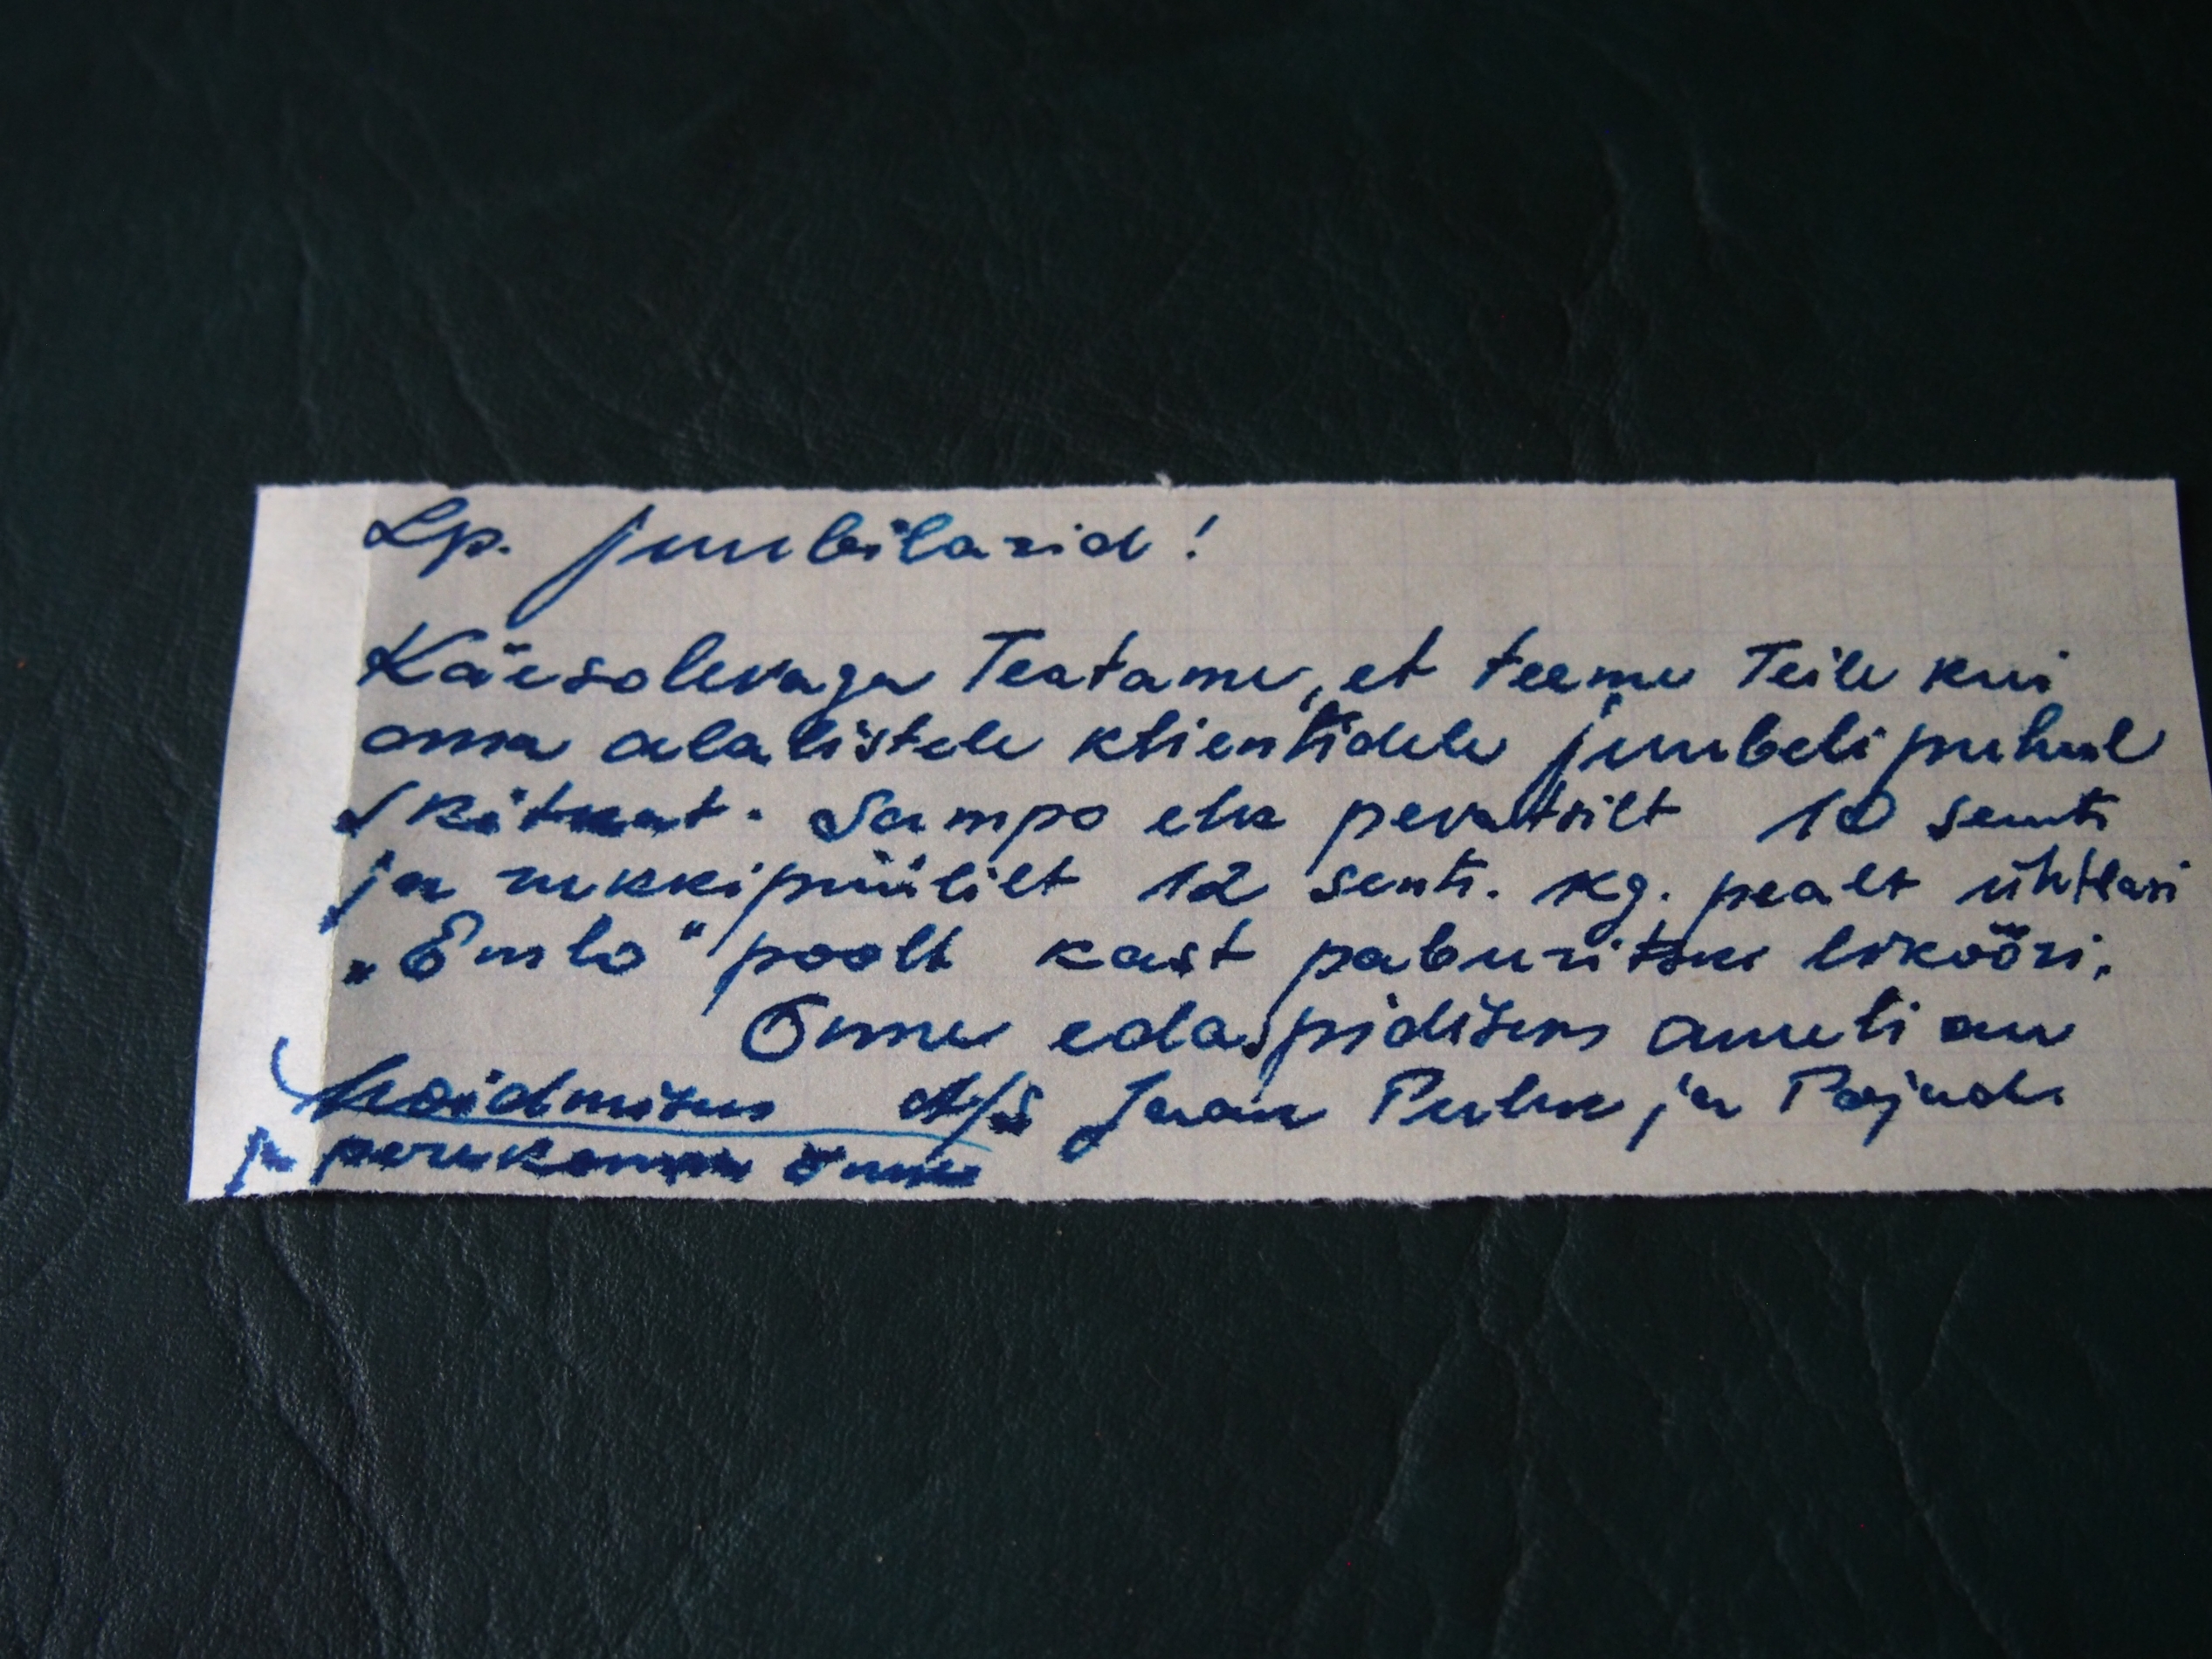 Lp. juubilarid!
Käesolevaga Teatame, et teeme Teile kui
oma alalistele klientidele juubeli puhul
skitkat. Sampo ehk pevatsilt 10 senti
ja rukkipüülilt 12 senti. kg. pealt ühtlasi
„Emlo" poolt kast paburitski likööri.
Õnne edaspidiseks ameti au
hoidmiseks A/S Jaan Puhk ja Pojad.
ja perekonna õnne